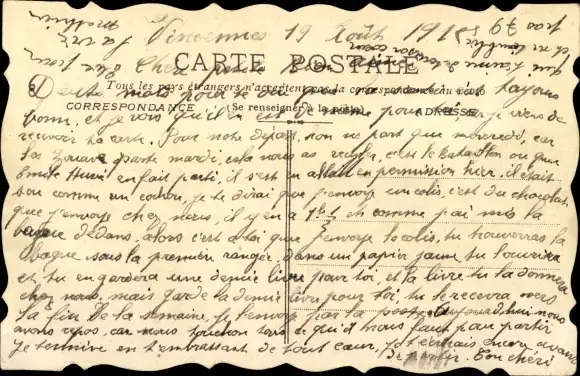 Vincennes 19 Août 191
CARTE POSTALE
Chéri petite
Tous les pays étrangers n'acceptent pas la correspondance au recto
(Se renseigner à la poste)
CORRESPONDANCE
ADRESSE
deux mots pour que ma santé est toujours
bonne, et je vois qu'il en est de même pour toi je viens de
recevoir ta carte. Pour notre départ, on ne part que mercredi, car
les Zouaves parte mardi, cela nous a reculer, c'est le bataillon ou que
Emile Henri en fait parti, il s'est en allait en permission hier, il était
bon comme un cochon, je te dirai que j'envoye un colis, c'est du chocolat,
que j'envoye chez nous, il y en a et comme j'ai mis la
bague dedans, alors c'est à toi que j'envoye le colis, tu trouveras la
bague sous la première rangée, dans un papier jaune, tu l'ouvrira
et tu en gardera une demie livre pour toi, et la livre tu la donnera
chez nous, mais garde la demie livre pour toi, tu le recevra vers
la fin de la semaine, je l'envoye par la poste. Aujourd'hui nous
avons repos, car nous touchon tous ce qu'il nous faut pour partir
je termine en t'embrassant de tout cœur, je t'écrirais encore avant
de partir. Ton chéri